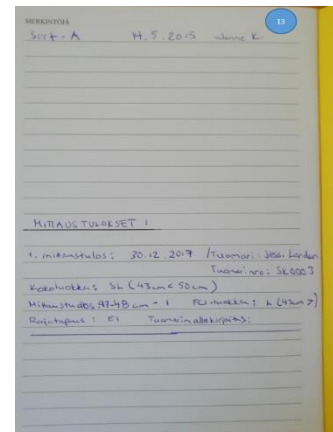 MERKINTÖJÄ
13
Siirt-A 14.5.2015 Janne K.
MITTAUSTULOKSET 1
1. mittaustulos: 30.12.2017 /Tuomari: Jess. Landen
Tuomarinro: SK0003
Kokoluokka: SL (43cm < 50cm)
Mittaustulos: 47-48 cm FCI-luokka: L (43cm >)
Rajatapaus: Ei Tuomarin allekirjoitus: